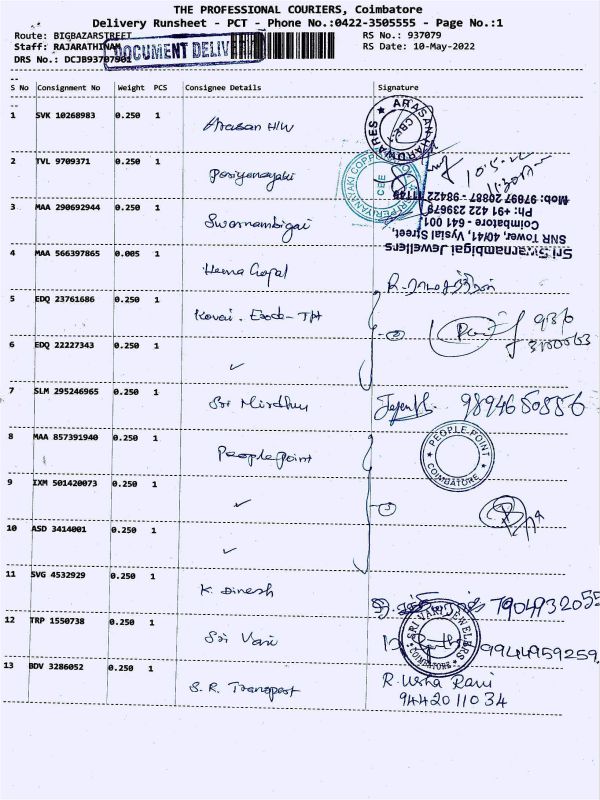 THE PROFESSIONAL COURIERS, Coimbatore
Delivery Runsheet - PCT - Phone No.:0422-3505555 - Page No.:1
Route: BIGBAZARSTREET
RS No.: 937079
Staff: RAJARATHINAM
RS Date: 10-May-2022
DRS No.: DCJB93707901
DOCUMENT DELIV
S No Consignment No Weight PCS Consignee Details Signature
1 SVK 10268983 0.250 1 Arasan H/W
ARASAN HARDWARES CBE-1
2 TVL 9709371 0.250 1 Periyanayaki
10.5.22
11:30
3 MAA 290692944 0.250 1 Swarnambigai
Sri Swarnambigai Jewellers
SNR Tower, 40/41, Vysial Street,
Coimbatore - 641 001
Ph: +91 422 239679
Mob: 97897 20887 - 98422
4 MAA 566397865 0.005 1 Hema Gopal
5 EDQ 23761686 0.250 1 Kovai. - TPT
6 EDQ 22227343 0.250 1 ✓
7 SLM 295246965 0.250 1 Sri Mirdhu
9894650856
8 MAA 857391940 0.250 1 PeoplePoint
PEOPLE-POINT COIMBATORE
9 IXM 501420073 0.250 1 ✓
3
10 ASD 3414001 0.250 1 ✓
11 SVG 4532929 0.250 1 K. Dinesh
7904932055
12 TRP 1550738 0.250 1 Sri Vari
SRI VARI JEWELERS COIMBATORE
9944959259
13 BDV 3286052 0.250 1 S.R. Transport
R. Usha Rani
9442011034